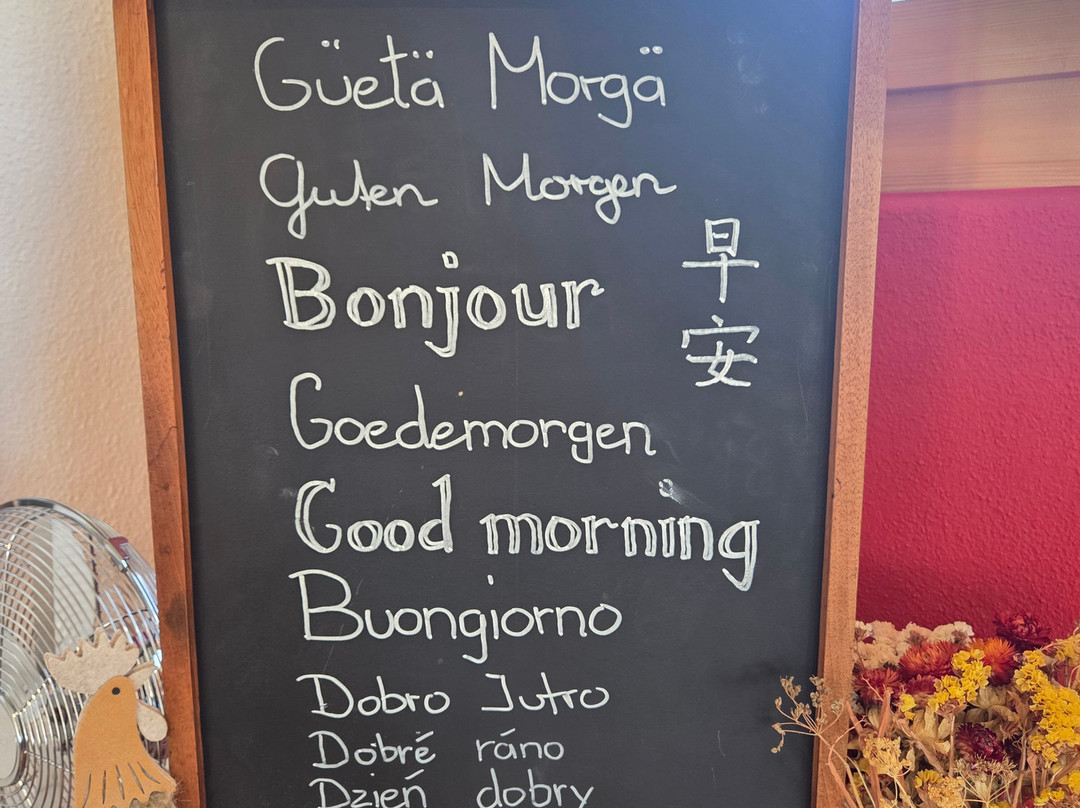 Güetä Morgä
Guten Morgen
Bonjour
早安
Goedemorgen
Good morning
Buongiorno
Dobro Jutro
Dobré ráno
Dzień dobry